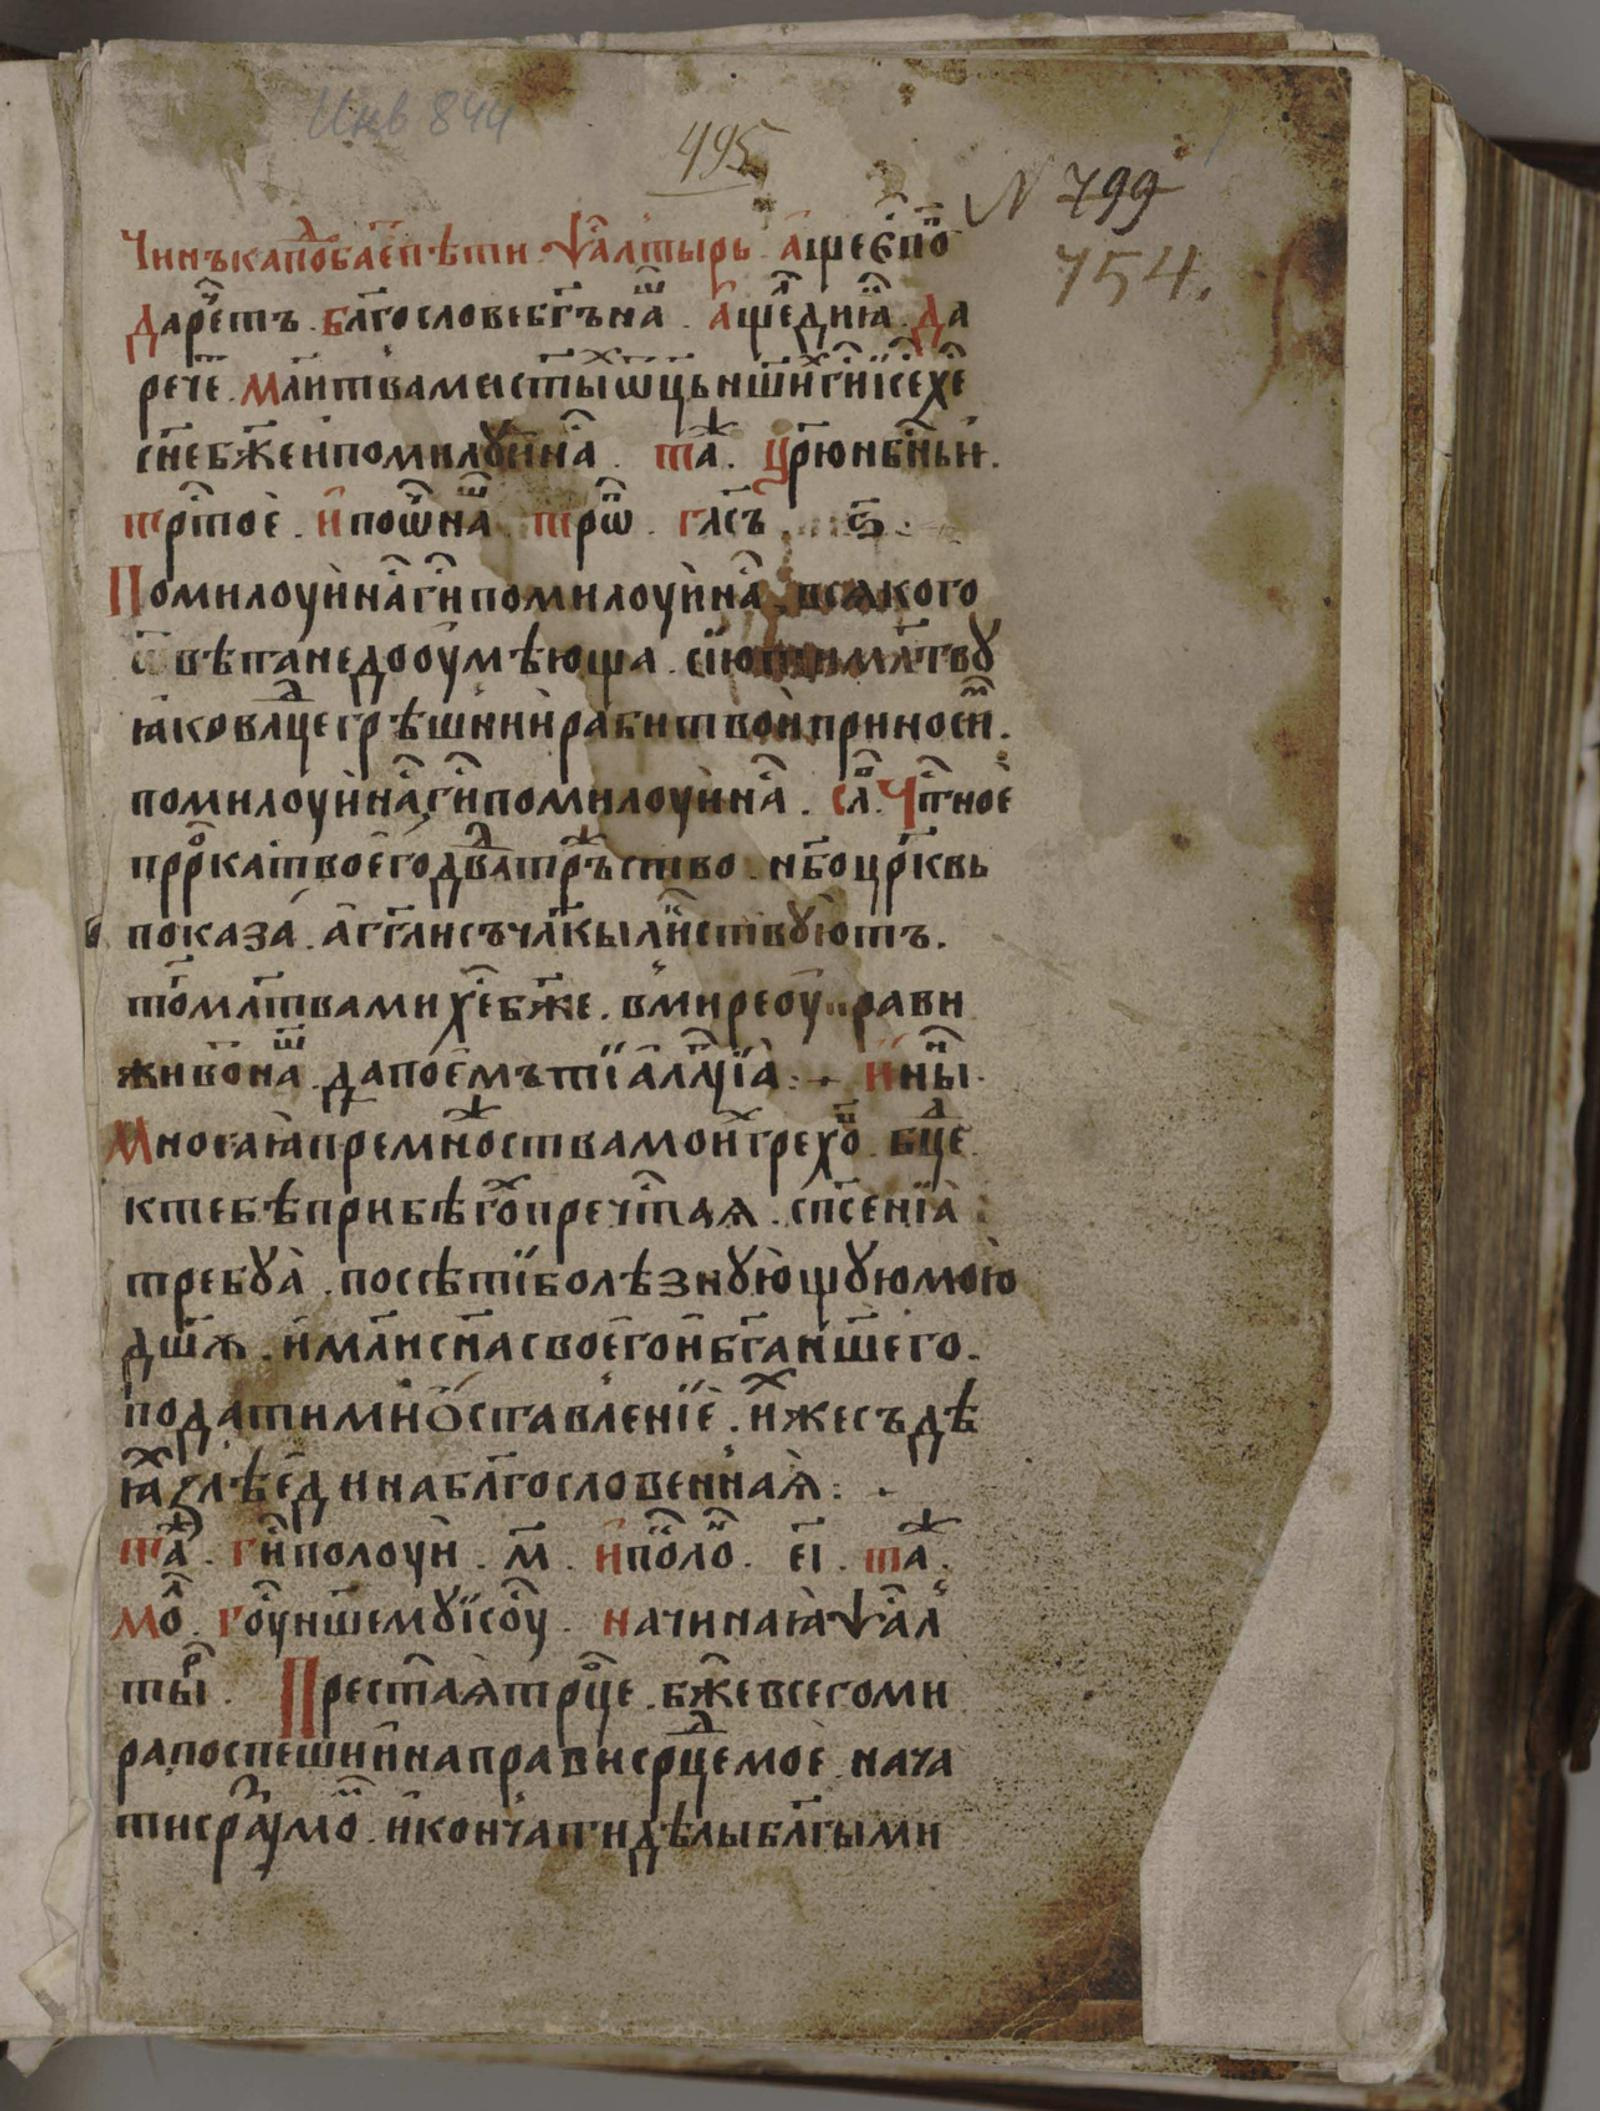 Инв 844
495
N 799
754.
Чинъ како побаетъ пѣти ѱалтырь. аще є попъ
да речетъ. блгословенъ бгъ нашъ. аще ли дїаконъ. да
рече. млитвами стыхъ ѡцъ ншихъ ги ісе хе
сне бжеи помилꙋи на. таж. црю нбныи.
тртое. и по ѡ҃ нашъ. тро. гласъ ѕ.
Помилоуи на ги помилоуи на. всякого
ѿвѣта недооумѣюща. сїю ти млтвꙋ
ꙗко влце грѣшнии раби твои приноси.
помилоуи на ги помилоуи на. сла. Чтное
пррка твоего два тръжство. нбо црквь
показа. аггли съ члкы ликствꙋютъ.
то млтвами хе бже. в мире оуправи
живо на. да поемъ ти алл҃уїа. и ны.
Многаꙗ премножства мои грехо. бце.
к тебѣ прибѣго пречтая. спсенїа
требꙋа. посѣти болѣзнꙋющꙋю мою
дшѫ. и мли сна своего и бга ншего.
подати ми ѡставленїе. ихже съдѣ
ꙗ злѣ едина блгословенная:
таж. ги полоуи. м. и поло. еі. таж.
мо. гоу ншемꙋ їсоу. начинаꙗ ѱал
ты. Престая трце. бже всего ми
ра поспеши и направи срце мое. нача
ти с разумо. и кончати дѣлы блгыми